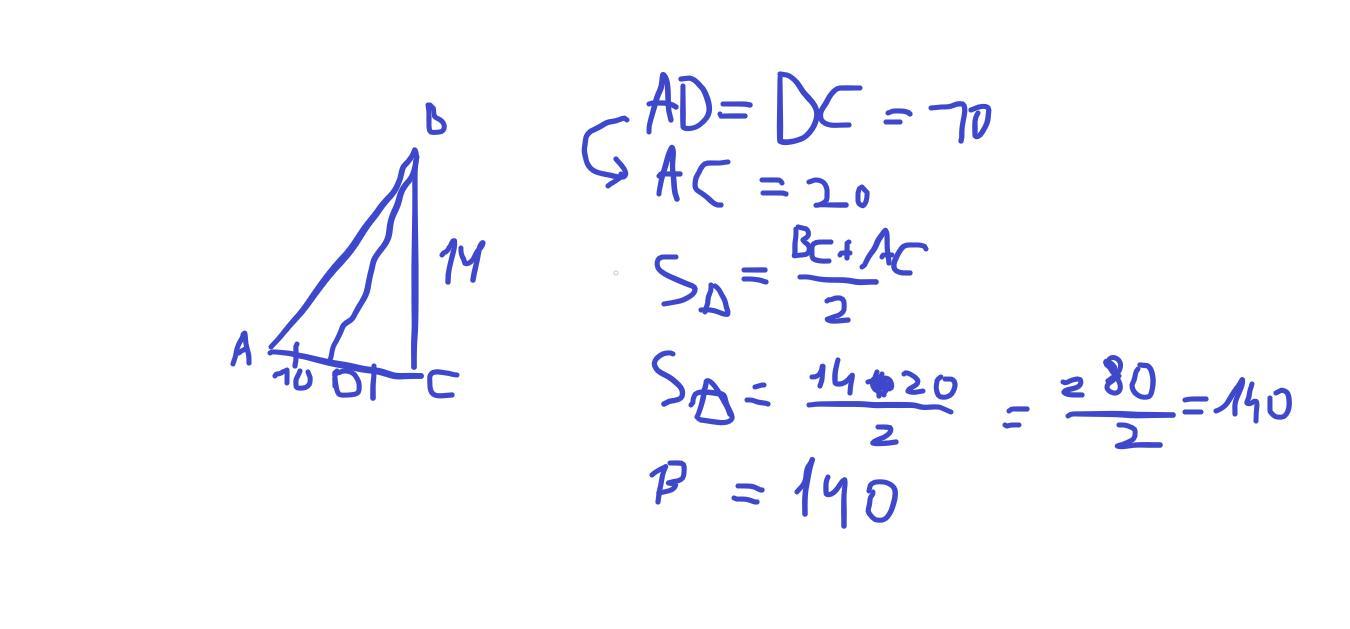 B
14
A
10
D
C
AD = DC = 10
AC = 20
S△ = BC + AC / 2
S△ = 14 • 20 / 2 = 280 / 2 = 140
= 140